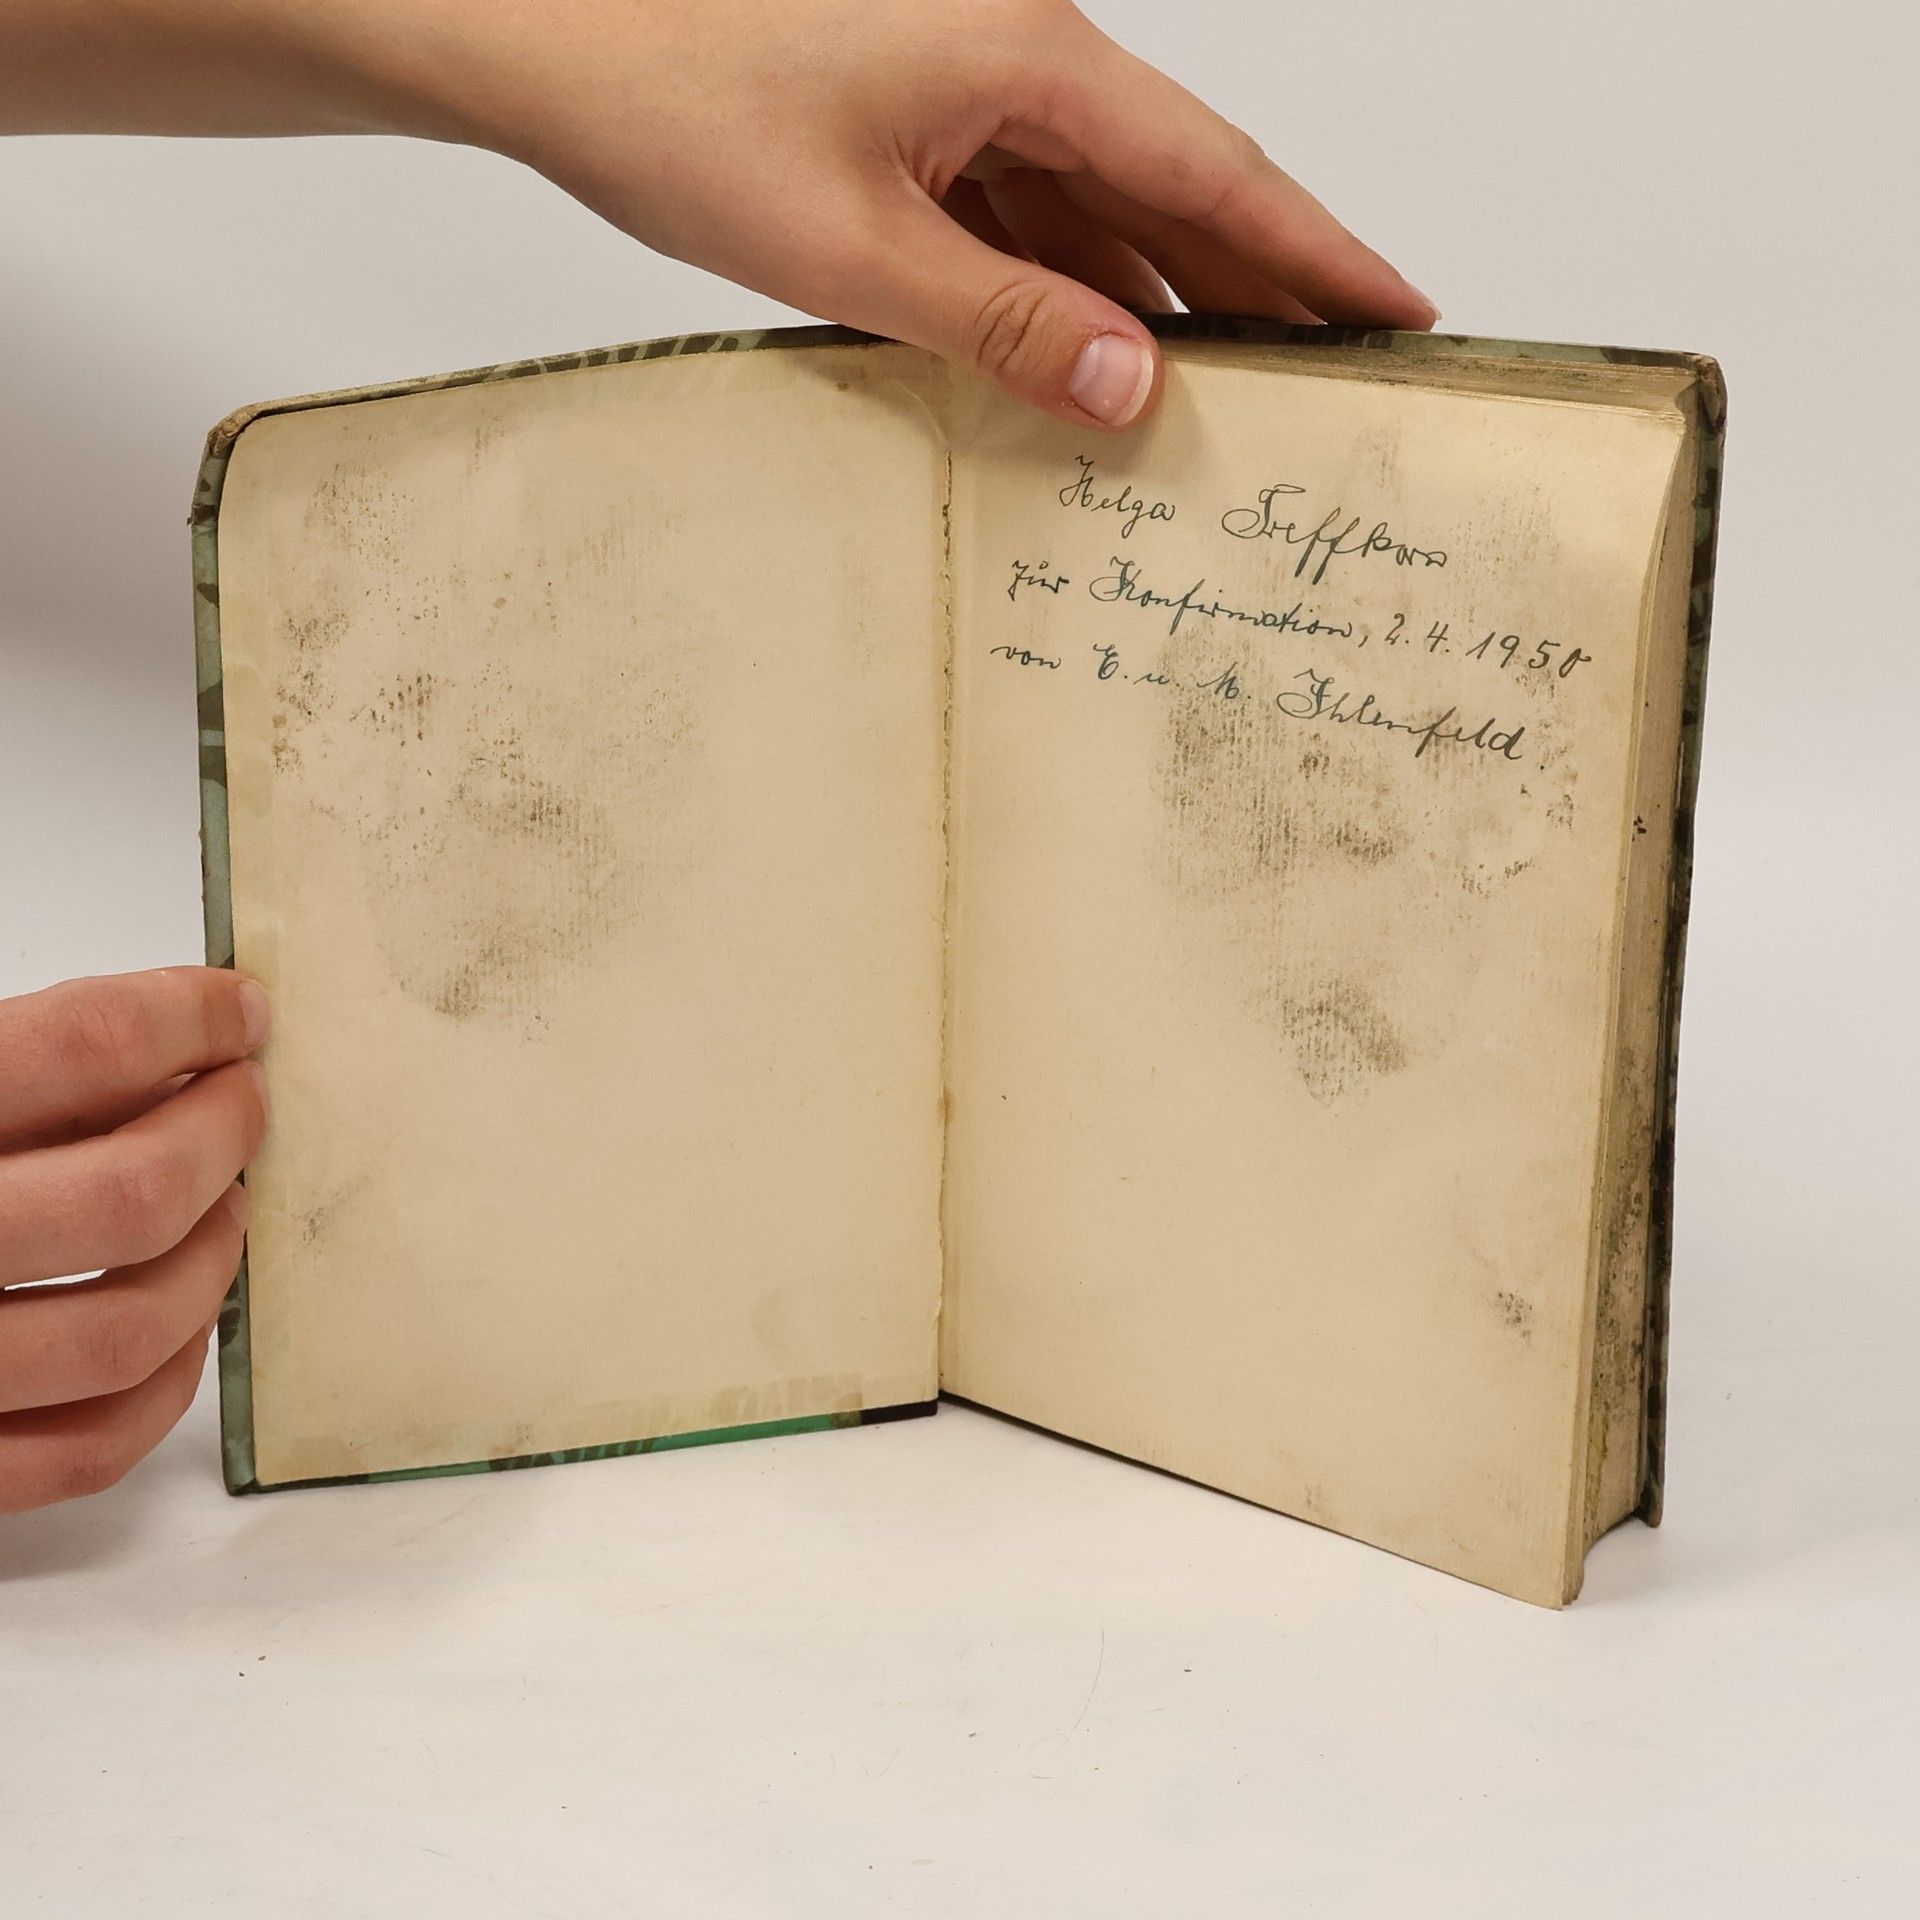 Helga Treffkorn
zur Konfirmation, 2. 4. 1950
von E. u. M. Ihlenfeld.